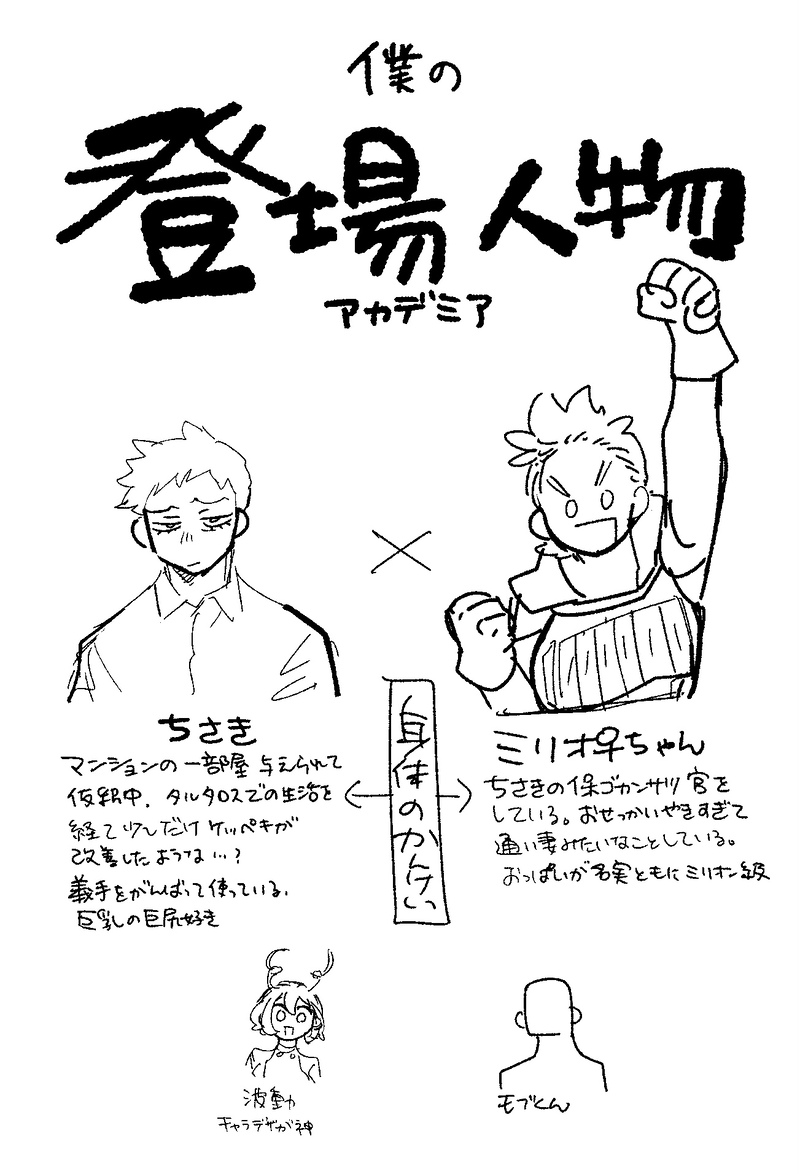 僕の
登場人物
アカデミア
ちさき
マンションの一部屋 与えられて
仮釈中。タルタロスでの生活を
経て少しだけケッペキが
改善したような…?
義手をがんばって使っている。
巨乳の巨尻好き
身体のかんけい
ミリオ♀ちゃん
ちさきの保ゴカンサツ官を
している。おせっかいやきすぎて
通い妻みたいなことしている。
おっぱいが名実ともにミリオン級
波動
キャラデザが神
モブくん